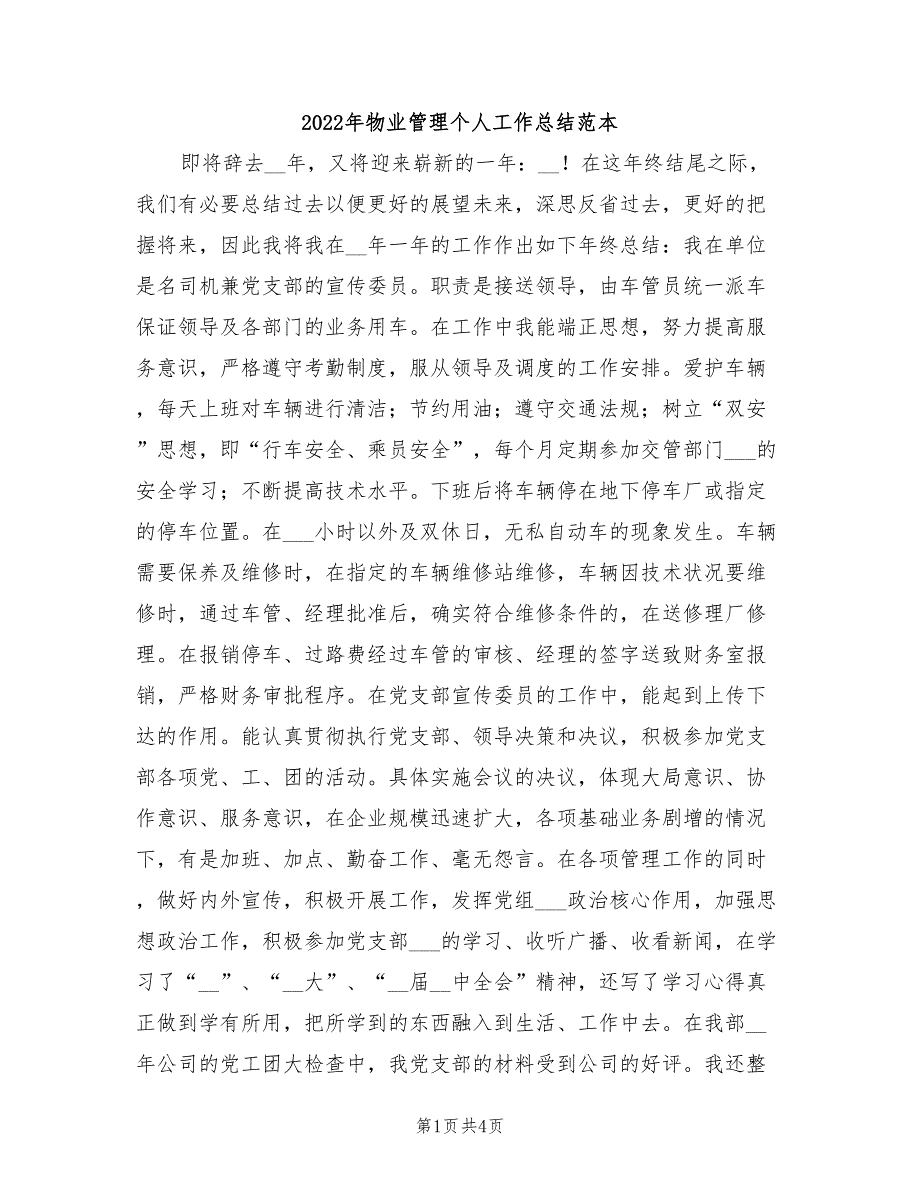 2022年物业管理个人工作总结范本
即将辞去__年，又将迎来崭新的一年：__！在这年终结尾之际，
我们有必要总结过去以便更好的展望未来，深思反省过去，更好的把
握将来，因此我将我在__年一年的工作作出如下年终总结：我在单位
是名司机兼党支部的宣传委员。职责是接送领导，由车管员统一派车
保证领导及各部门的业务用车。在工作中我能端正思想，努力提高服
务意识，严格遵守考勤制度，服从领导及调度的工作安排。爱护车辆
，每天上班对车辆进行清洁；节约用油；遵守交通法规；树立“双安
”思想，即“行车安全、乘员安全”，每个月定期参加交管部门___的
安全学习；不断提高技术水平。下班后将车辆停在地下停车厂或指定
的停车位置。在___小时以外及双休日，无私自动车的现象发生。车辆
需要保养及维修时，在指定的车辆维修站维修，车辆因技术状况要维
修时，通过车管、经理批准后，确实符合维修条件的，在送修理厂修
理。在报销停车、过路费经过车管的审核、经理的签字送致财务室报
销，严格财务审批程序。在党支部宣传委员的工作中，能起到上传下
达的作用。能认真贯彻执行党支部、领导决策和决议，积极参加党支
部各项党、工、团的活动。具体实施会议的决议，体现大局意识、协
作意识、服务意识，在企业规模迅速扩大，各项基础业务剧增的情况
下，有是加班、加点、勤奋工作、毫无怨言。在各项管理工作的同时
，做好内外宣传，积极开展工作，发挥党组___政治核心作用，加强思
想政治工作，积极参加党支部___的学习、收听广播、收看新闻，在学
习了“__”、“__大”、“__届__中全会”精神，还写了学习心得真
正做到学有所用，把所学到的东西融入到生活、工作中去。在我部__
年公司的党工团大检查中，我党支部的材料受到公司的好评。我还整
第1页共4页